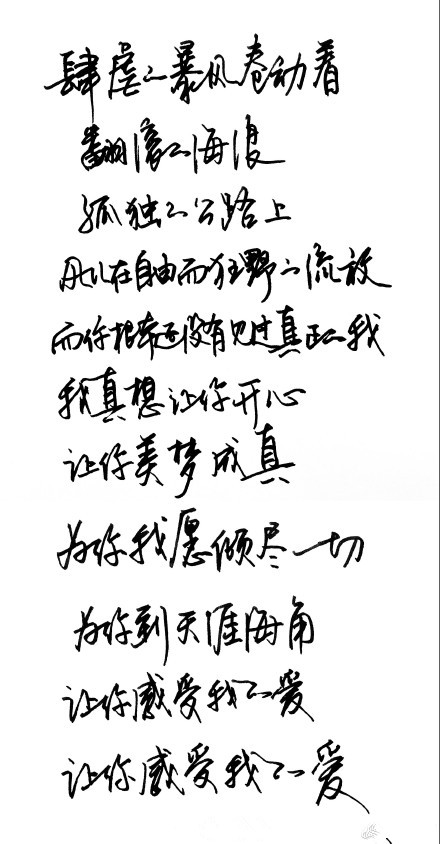 肆虐的暴风卷动着
翻滚的海浪
孤独的公路上
用心在自由而狂野的流放
而你根本还没有见过真正的我
我真想让你开心
让你美梦成真
为你我愿倾尽一切
为你到天涯海角
让你感受我的爱
让你感受我的爱